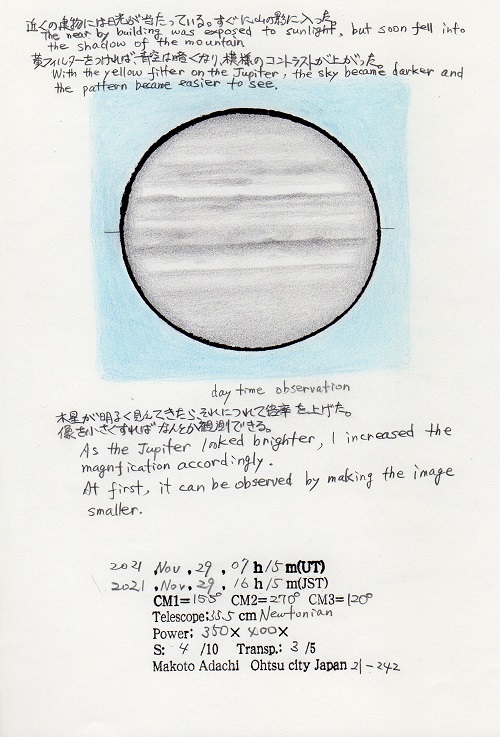 近くの建物には日光が当たっている。すぐに山の影に入った。
The near by building was exposed to sunlight, but soon fell into
the shadow of the mountain
黄フィルターをつければ、青空は暗くなり、模様のコントラストが上がった。
With the yellow filter on the Jupiter, the sky became darker and
the pattern became easier to see.
day time observation
木星が明るく見えてきたら、それにつれて倍率を上げた。
像を小さくすればなんとか観測できる。
As the Jupiter looked brighter, I increased the
magnfication accordingly.
At first, it can be observed by making the image
smaller.
2021 .Nov. 29. 07 h 15 m(UT)
2021 .Nov. 29. 16 h 15 m(JST)
CM1=155° CM2=270° CM3=120°
Telescope:35.5 cm Newtonian
Power: 350× 400×
S: 4 /10 Transp.: 3 /5
Makoto Adachi Ohtsu city Japan 21-242